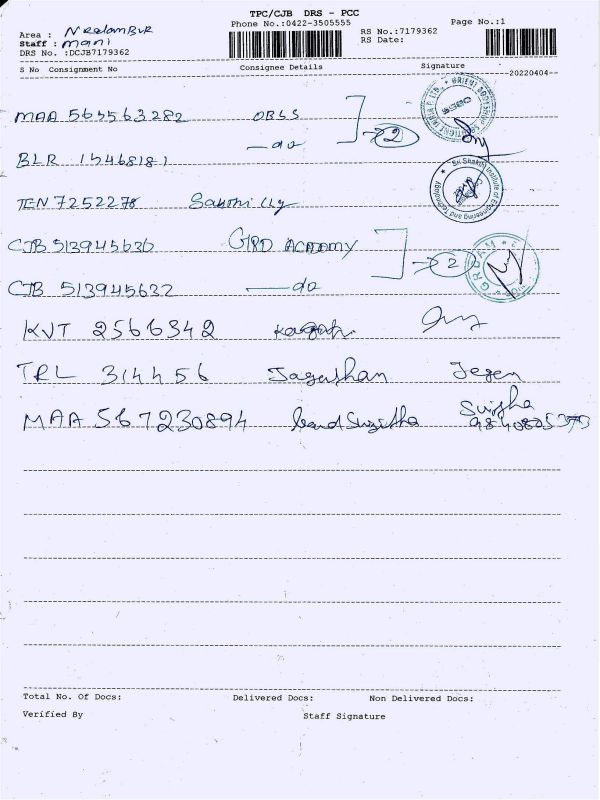 TPC/CJB DRS - PCC
Phone No.:0422-3505555
Page No.:1
Area : Neelambur
Staff : mani
DRS No. :DCJB7179362
RS No.:7179362
RS Date:
S No Consignment No Consignee Details Signature
--20220404--
MAA 563563282 OBSS
2
BLR 15468181 — do
TEN 7252278 Sakthi Clg
Sri Shakthi Institute of Engineering and Technology
CJB 513945630 GRD ACADEMY
2
CJB 513945632 — do
KVT 2566342
TRL 314456 Jagathan Jegen
MAA 567230894
Total No. Of Docs: Delivered Docs: Non Delivered Docs:
Verified By Staff Signature